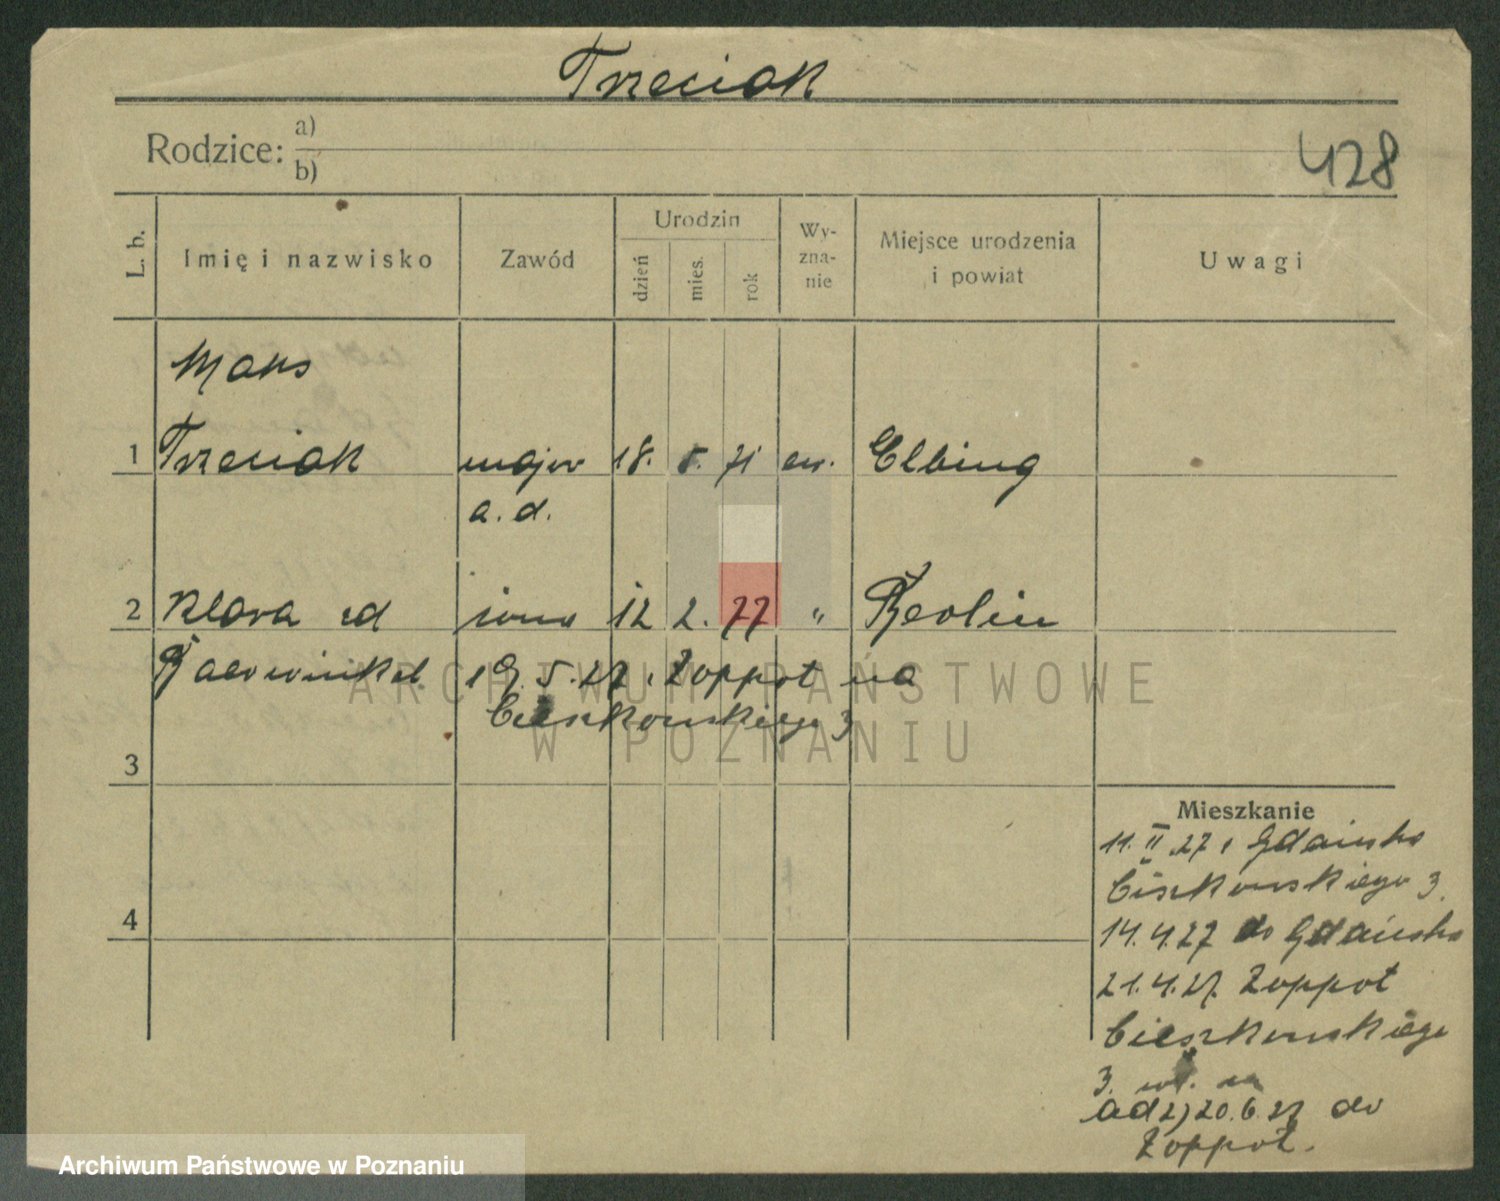 Trzeciak
Rodzice: a)
b)
428
L. b.
Imię i nazwisko
Zawód
Urodzin
dzień
mies.
rok
Wy-
zna-
nie
Miejsce urodzenia
i powiat
Uwagi
Maks
1 Trzeciak major 18. 5. 71 ew. Elbing
a. d.
2 Klara zd żona 12 2. 77 " Berlin
19.5.27. Zoppot na
Cieszkowskiego 3
3
4
Mieszkanie
11. II .27 z Gdańska
Ciszkowskiego 3.
14.4.27 do Gdańska
21.4.27. Zoppot
Cieszkowskiego
3.
ad 2) 20.6.27 do
Zoppot.
ARCHIWUM PAŃSTWOWE
W POZNANIU
Archiwum Państwowe w Poznaniu